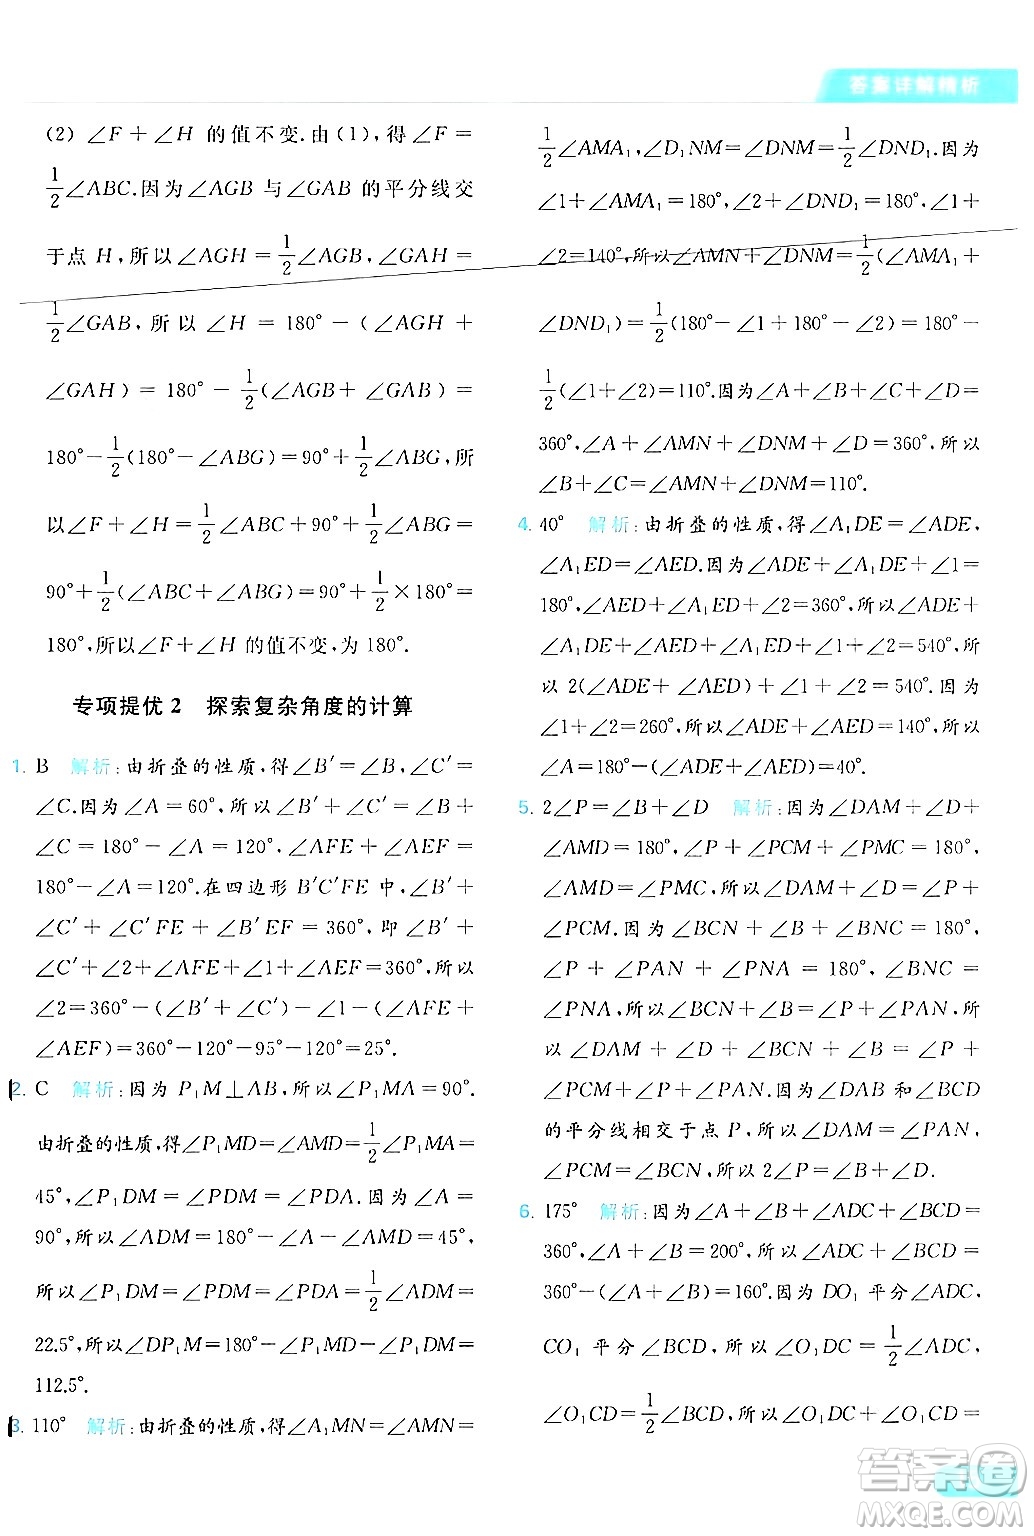 答案详解精析
(2) ∠F+∠H 的值不变.由(1),得∠F=
1/2∠ABC.因为∠AGB 与∠GAB 的平分线交
于点 H,所以∠AGH=1/2∠AGB,∠GAH=
1/2∠GAB,所以∠H=180°-(∠AGH+
∠GAH)=180°-1/2(∠AGB+∠GAB)=
180°-1/2(180°-∠ABG)=90°+1/2∠ABG,所
以∠F+∠H=1/2∠ABC+90°+1/2∠ABG=
90°+1/2(∠ABC+∠ABG)=90°+1/2×180°=
180°,所以∠F+∠H 的值不变,为 180°.
专项提优 2 探索复杂角度的计算
1. B 解析:由折叠的性质,得∠B′=∠B,∠C′=
∠C.因为∠A=60°,所以∠B′+∠C′=∠B+
∠C=180°-∠A=120°,∠AFE+∠AEF=
180°-∠A=120°.在四边形 B′C′FE 中,∠B′+
∠C′+∠C′FE+∠B′EF=360°,即∠B′+
∠C′+∠1+∠2+∠AFE+∠AEF=360°,所以
∠2=360°-(∠B′+∠C′)-∠1-(∠AFE+
∠AEF)=360°-120°-95°-120°=25°.
2. C 解析:因为 P₁M⊥AB,所以∠P₁MA=90°.
由折叠的性质,得∠P₁MD=∠AMD=1/2∠P₁MA=
45°,∠P₁DM=∠PDM=∠PDA.因为∠A=
90°,所以∠ADM=180°-∠A-∠AMD=45°,
所以∠P₁DM=∠PDM=∠PDA=1/2∠ADM=
22.5°,所以∠DP₁M=180°-∠P₁MD-∠P₁DM=
112.5°.
3. 110° 解析:由折叠的性质,得∠A₁MN=∠AMN=
1/2∠AMA₁,∠D₁NM=∠DNM=1/2∠DND₁.因为
∠1+∠AMA₁=180°,∠2+∠DND₁=180°,∠1+
∠2=140°,所以∠AMN+∠DNM=1/2(∠AMA₁+
∠DND₁)=1/2(180°-∠1+180°-∠2)=180°-
1/2(∠1+∠2)=110°.因为∠A+∠B+∠C+∠D=
360°,∠A+∠AMN+∠DNM+∠D=360°,所以
∠B+∠C=∠AMN+∠DNM=110°.
4. 40° 解析:由折叠的性质,得∠A₁DE=∠ADE,
∠A₁ED=∠AED.因为∠ADE+∠A₁DE+∠1=
180°,∠AED+∠A₁ED+∠2=360°,所以∠ADE+
∠A₁DE+∠1+∠AED+∠A₁ED+∠2=540°,
所以 2(∠ADE+∠AED)+∠1+∠2=540°.因为
∠1+∠2=260°,所以∠ADE+∠AED=140°,所以
∠A=180°-(∠ADE+∠AED)=40°.
5. 2∠P=∠B+∠D 解析:因为∠DAM+∠D+
∠AMD=180°,∠P+∠PCM+∠PMC=180°,
∠AMD=∠PMC,所以∠DAM+∠D=∠P+
∠PCM.因为∠BCN+∠B+∠BNC=180°,
∠P+∠PAN+∠PNA=180°,∠BNC=
∠PNA,所以∠BCN+∠B=∠P+∠PAN,所
以∠DAM+∠D+∠BCN+∠B=∠P+
∠PCM+∠P+∠PAN.因为∠DAB 和∠BCD
的平分线相交于点 P,所以∠DAM=∠PAN,
∠PCM=∠BCN,所以 2∠P=∠B+∠D.
6. 175° 解析:因为∠A+∠B+∠ADC+∠BCD=
360°,∠A+∠B=200°,所以∠ADC+∠BCD=
360°-(∠A+∠B)=160°.因为 DO₁ 平分∠ADC,
CO₁ 平分∠BCD,所以∠O₁DC=1/2∠ADC,
∠O₁CD=1/2∠BCD,所以∠O₁DC+∠O₁CD=
答案圈
MXQE.COM